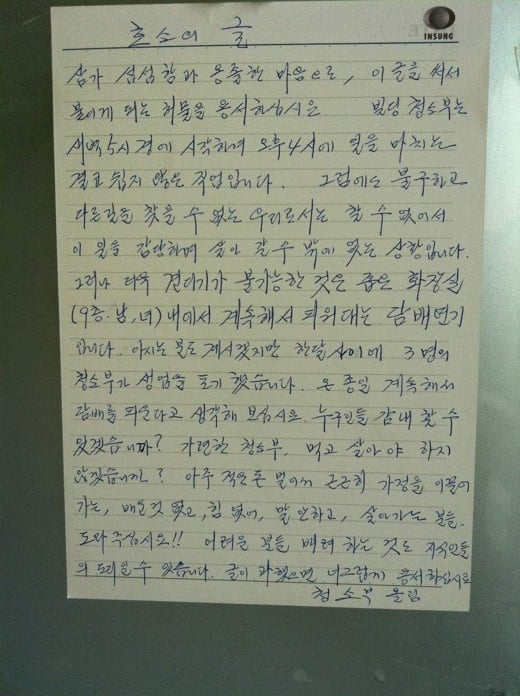 INSUNG
호소의 글
삼가 섭섭함과 옹졸한 마음으로, 이 글을 써서
붙이게 되는 허물을 용서하십시요. 빌딩 청소부는
새벽 5시경에 시작하여 오후 4시에 일을 마치는
결코 쉽지 않은 직업입니다. 그럼에도 불구하고
다른길을 찾을 수 없는 우리로서는 할 수 없어서
이 일을 감당하며 살아 갈 수 밖에 없는 상황입니다.
그러나 더욱 견디기가 불가능한 것은 좁은 화장실
(9층.남,녀) 내에서 계속해서 피워대는 담배연기
입니다. 아시는 분도 계시겠지만 한달 사이에 3명의
청소부가 생업을 포기했습니다. 온 종일 계속해서
담배를 피운다고 생각해 보십시요. 누구인들 감내 할 수
있겠습니까? 가련한 청소부. 먹고 살아야 하지
않겠습니까? 아주 적은 돈 벌어서 근근히 가정을 이끌어
가는, 배운것 없고, 힘 없어, 말 안하고, 살아가는 분들.
도와주십시요!! 어려운 분들 배려 하는 것도 지식인들
의 도리일 수 있습니다. 글이 과했으면 너그럽게 용서하십시요
청소부 올림